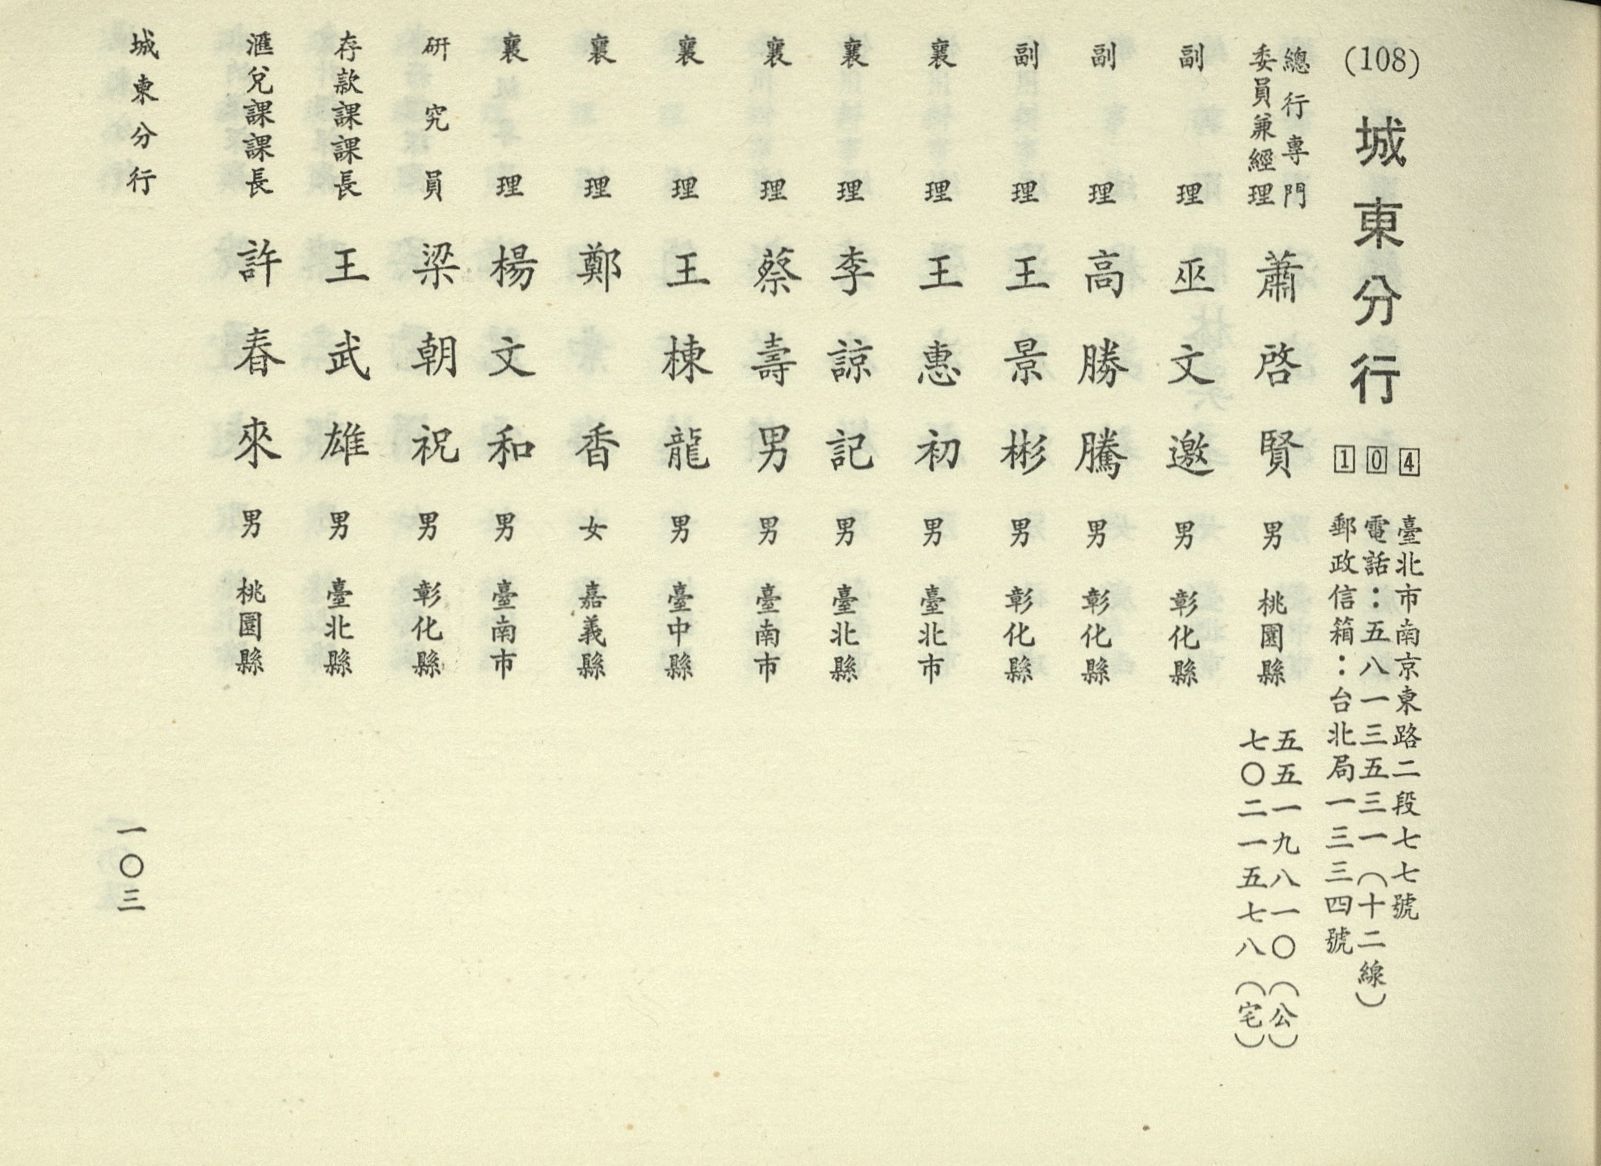 (108) 城東分行
104
臺北市南京東路二段七七號
電話：五八一三五三一（十二線）
郵政信箱：台北局一三三四號
總行專門
委員兼經理 蕭啓賢 男 桃園縣 五五一九八一〇（公）
七〇二一五七八（宅）
副理 巫文邀 男 彰化縣
副理 高勝騰 男 彰化縣
副理 王景彬 男 彰化縣
襄理 王惠初 男 臺北市
襄理 李諒記 男 臺北縣
襄理 蔡壽男 男 臺南市
襄理 王棟龍 男 臺中縣
襄理 鄭香 女 嘉義縣
襄理 楊文和 男 臺南市
研究員 梁朝祝 男 彰化縣
存款課課長 王武雄 男 臺北縣
滙兌課課長 許春來 男 桃園縣
城東分行
一〇三